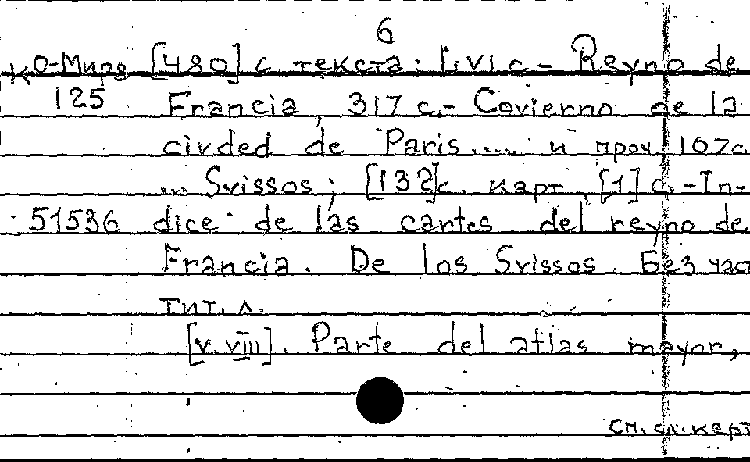 6
К О-Мира [480] с текста: LVI с - Reyno de
125 Francia, 317 с.- Govierno de la
civded de Paris..... и проч. 107с
... Svissos; [132]с. карт, [1] с.-In-
51536 dice de las cartes del reyno de
Francia. De los Svissos. Без част
тит. л.
[v. VIII]. Parte del atlas mayor,
См. сл. карт